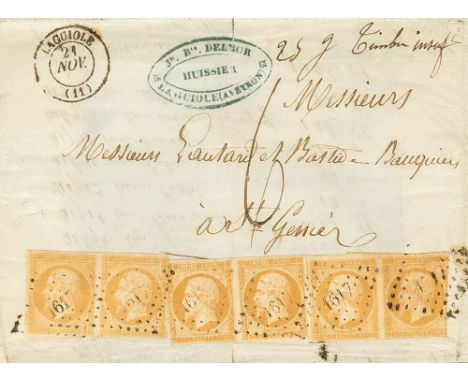 LAGUIOLE
21
NOV.
(11)
Jh. Bte. DELMUR
HUISSIER
À LAGUIOLE (AVEYRON)
25 g Timbre insuff
6
Messieurs
Messieurs Lautard et Bastide Banquiers
à St Geniez
1617